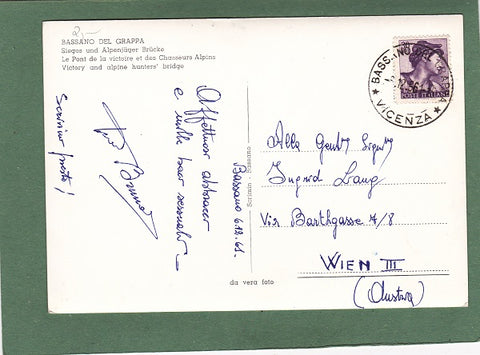 2,—
BASSANO DEL GRAPPA
Sieges und Alpenjäger Brücke
Le Pont de la victoire et des Chasseurs Alpins
Victory and alpine hunters' bridge
BASSANO DEL GRAPPA
VICENZA
POSTE ITALIANE
Bassano 6.12.61.
Affettuosi abbracci
e mille baci sessuali
Bruno
Scrivimi presto!
Scrimin - Bassano
Alla
Ingrid Lang
Via Barthgasse 7/8
WIEN III
(Austria)
da vera foto